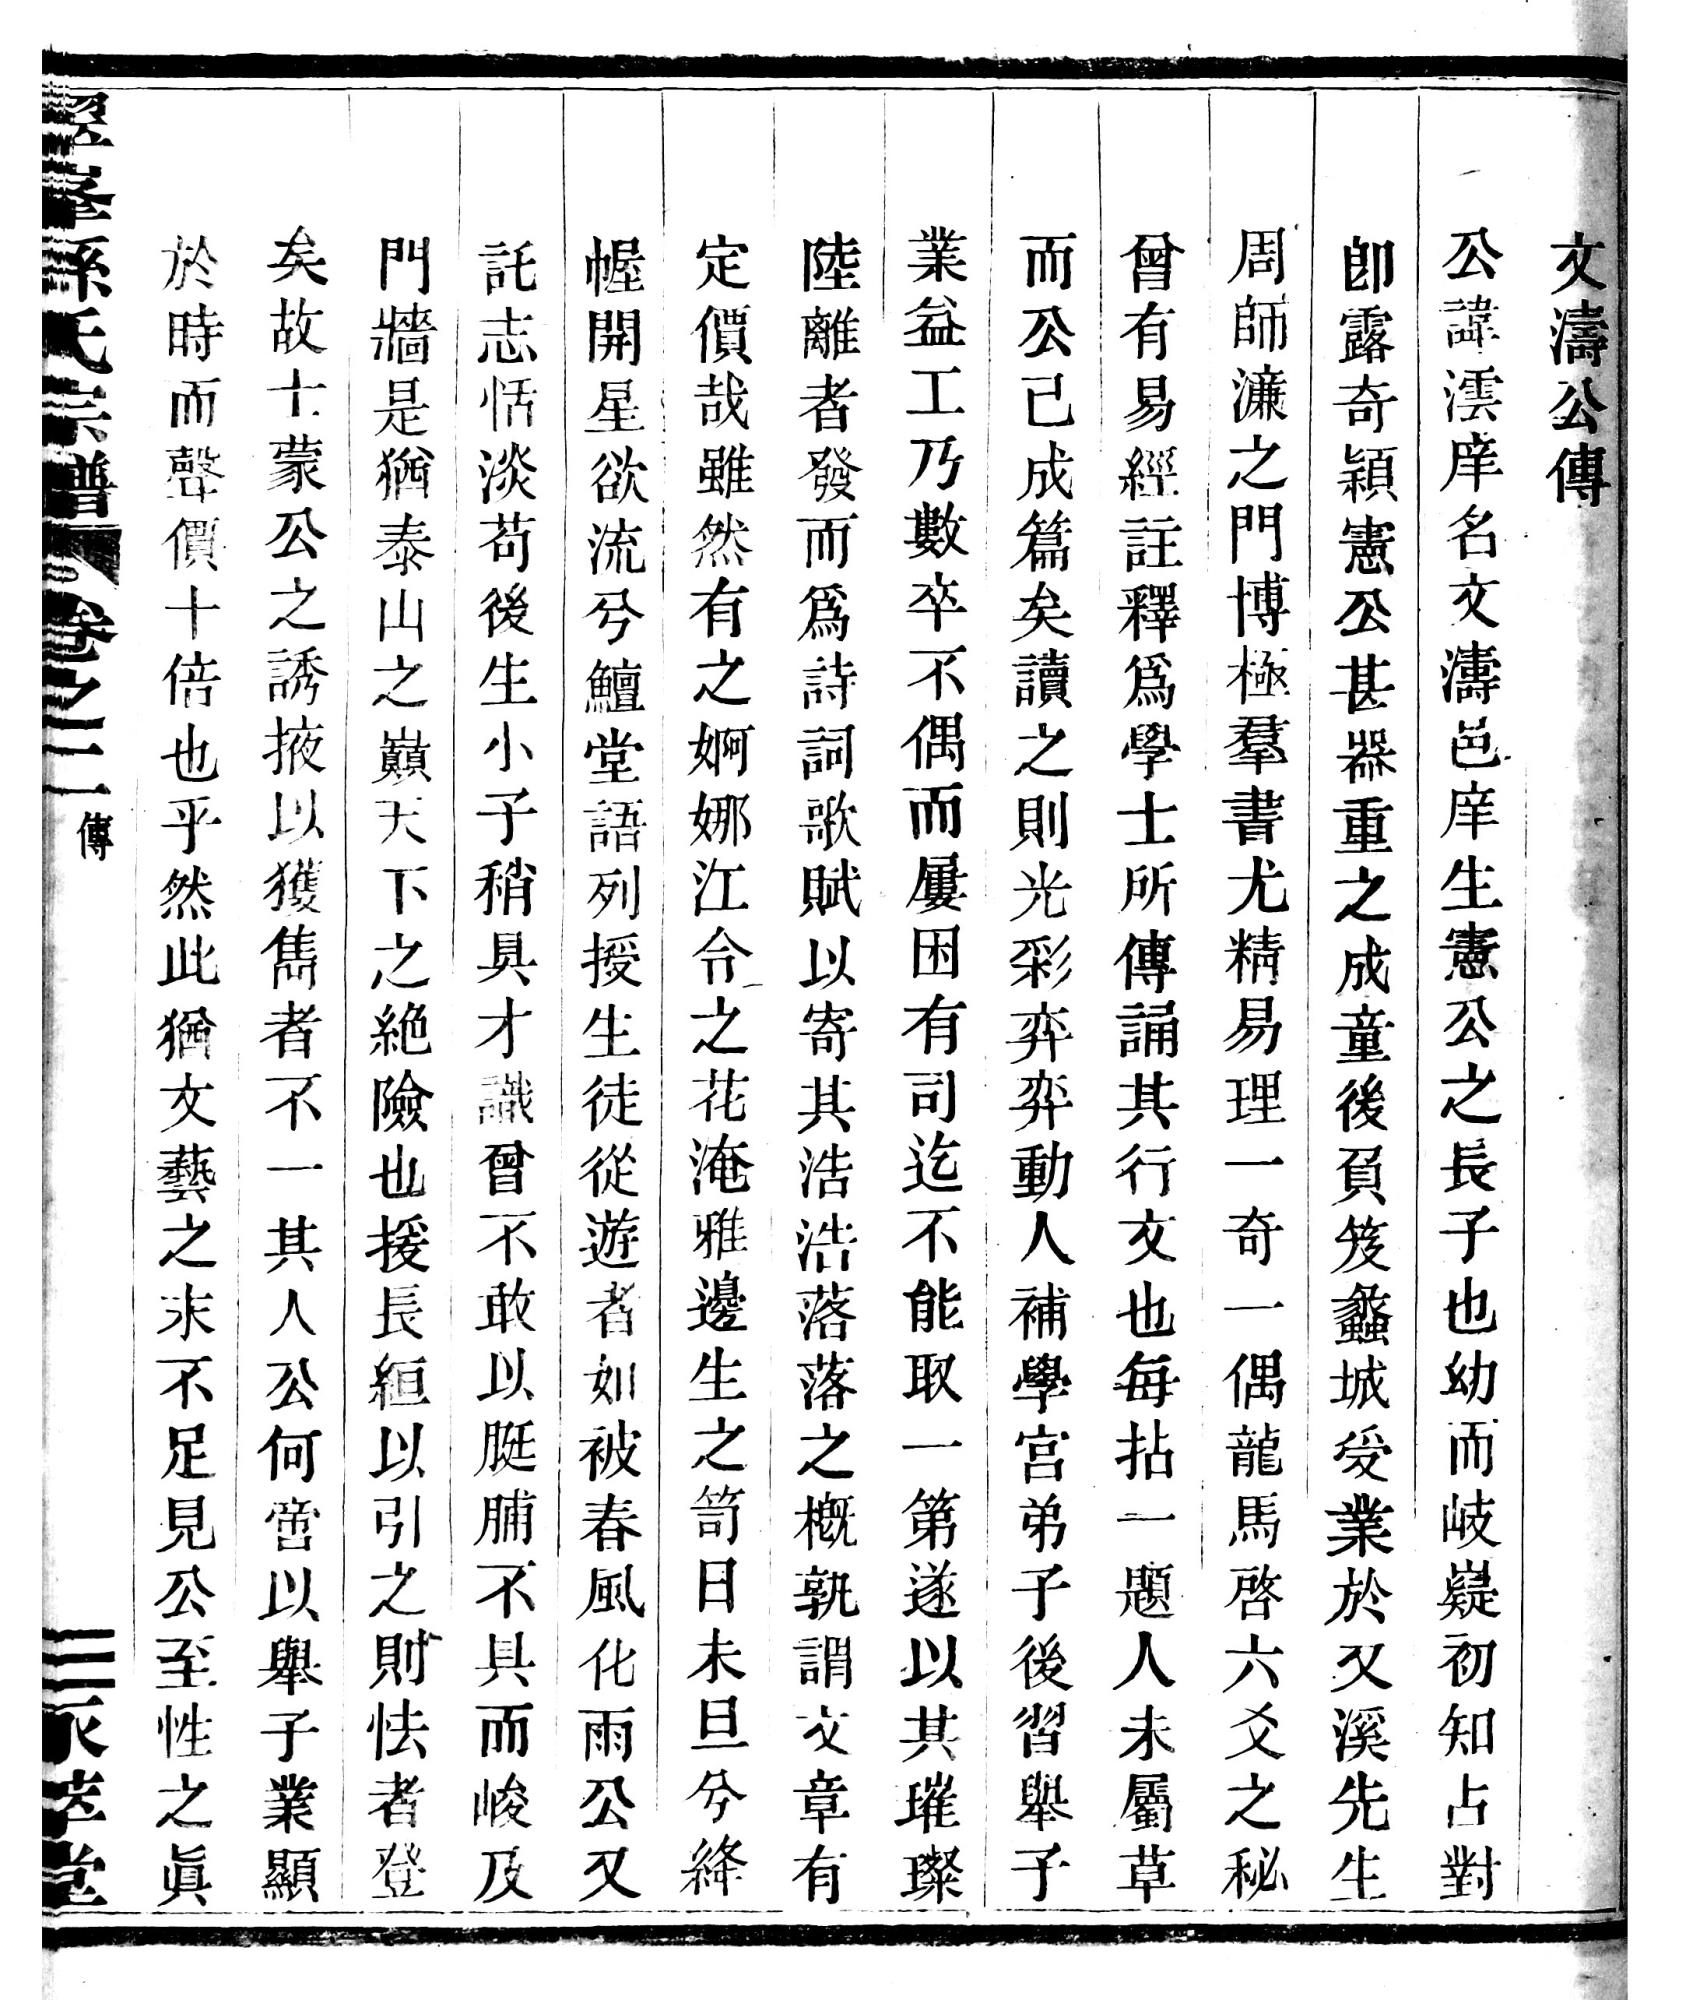 文濤公傳
公諱澐庠名文濤邑庠生憲公之長子也幼而岐嶷初知占對
卽露奇穎憲公甚器重之成童後負笈蠡城受業於又溪先生
周師濂之門博極羣書尤精易理一奇一偶龍馬啓六爻之秘
曾有易經註釋爲學士所傳誦其行文也每拈一題人未屬草
而公已成篇矣讀之則光彩弈弈動人補學宮弟子後習舉子
業益工乃數卒不偶而屢困有司迄不能取一第遂以其璀璨
陸離者發而爲詩詞歌賦以寄其浩浩落落之概孰謂文章有
定價哉雖然有之婀娜江令之花淹雅邊生之笥日未旦兮絳
幄開星欲流兮鱣堂語列授生徒從遊者如被春風化雨公又
託志恬淡苟後生小子稍具才識曾不敢以脡脯不具而峻及
門牆是猶泰山之巔天下之絶險也援長縆以引之則怯者登
矣故士蒙公之誘掖以獲雋者不一其人公何啻以舉子業顯
於時而聲價十倍也乎然此猶文藝之末不足見公至性之眞
孫氏宗譜 卷之二 傳 三 萃堂